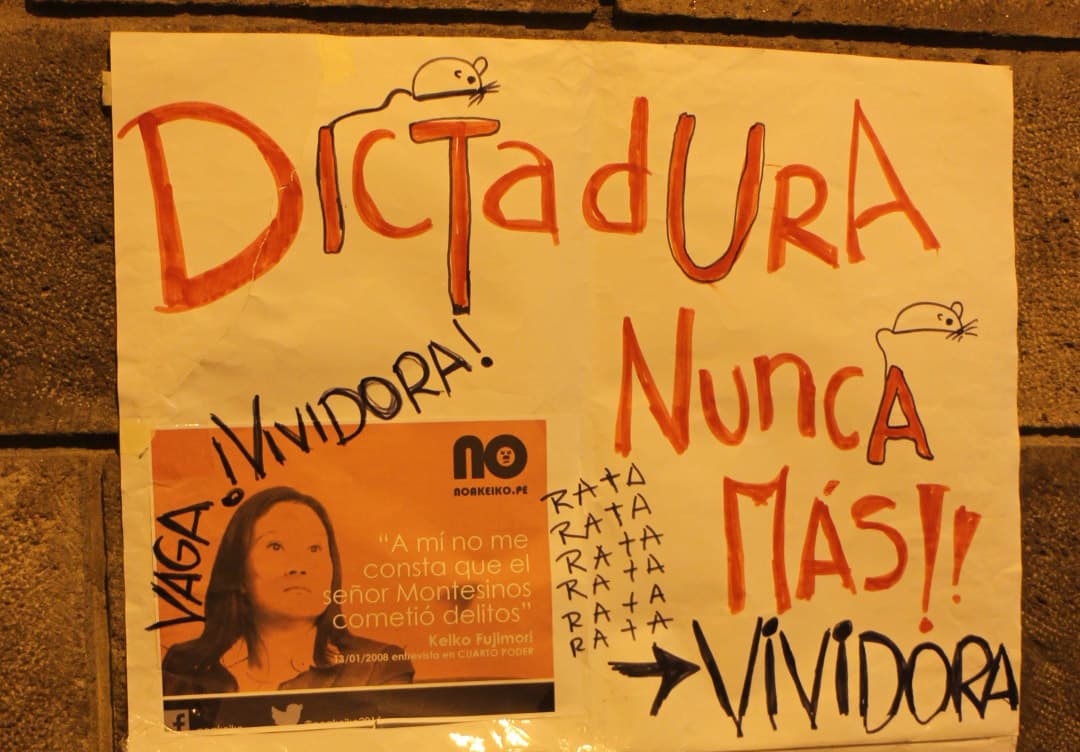 DICTadURA
NUncA
MÁS!!
VAGA! ¡VIVIDORA!
NO
NOAKEIKO.PE
“A mí no me
consta que el
señor Montesinos
cometió delitos”
Keiko Fujimori
13/01/2008 entrevista en CUARTO PODER
RATA
RATA
RATA
RATA
RATA
RATA
→ VIVIDORA